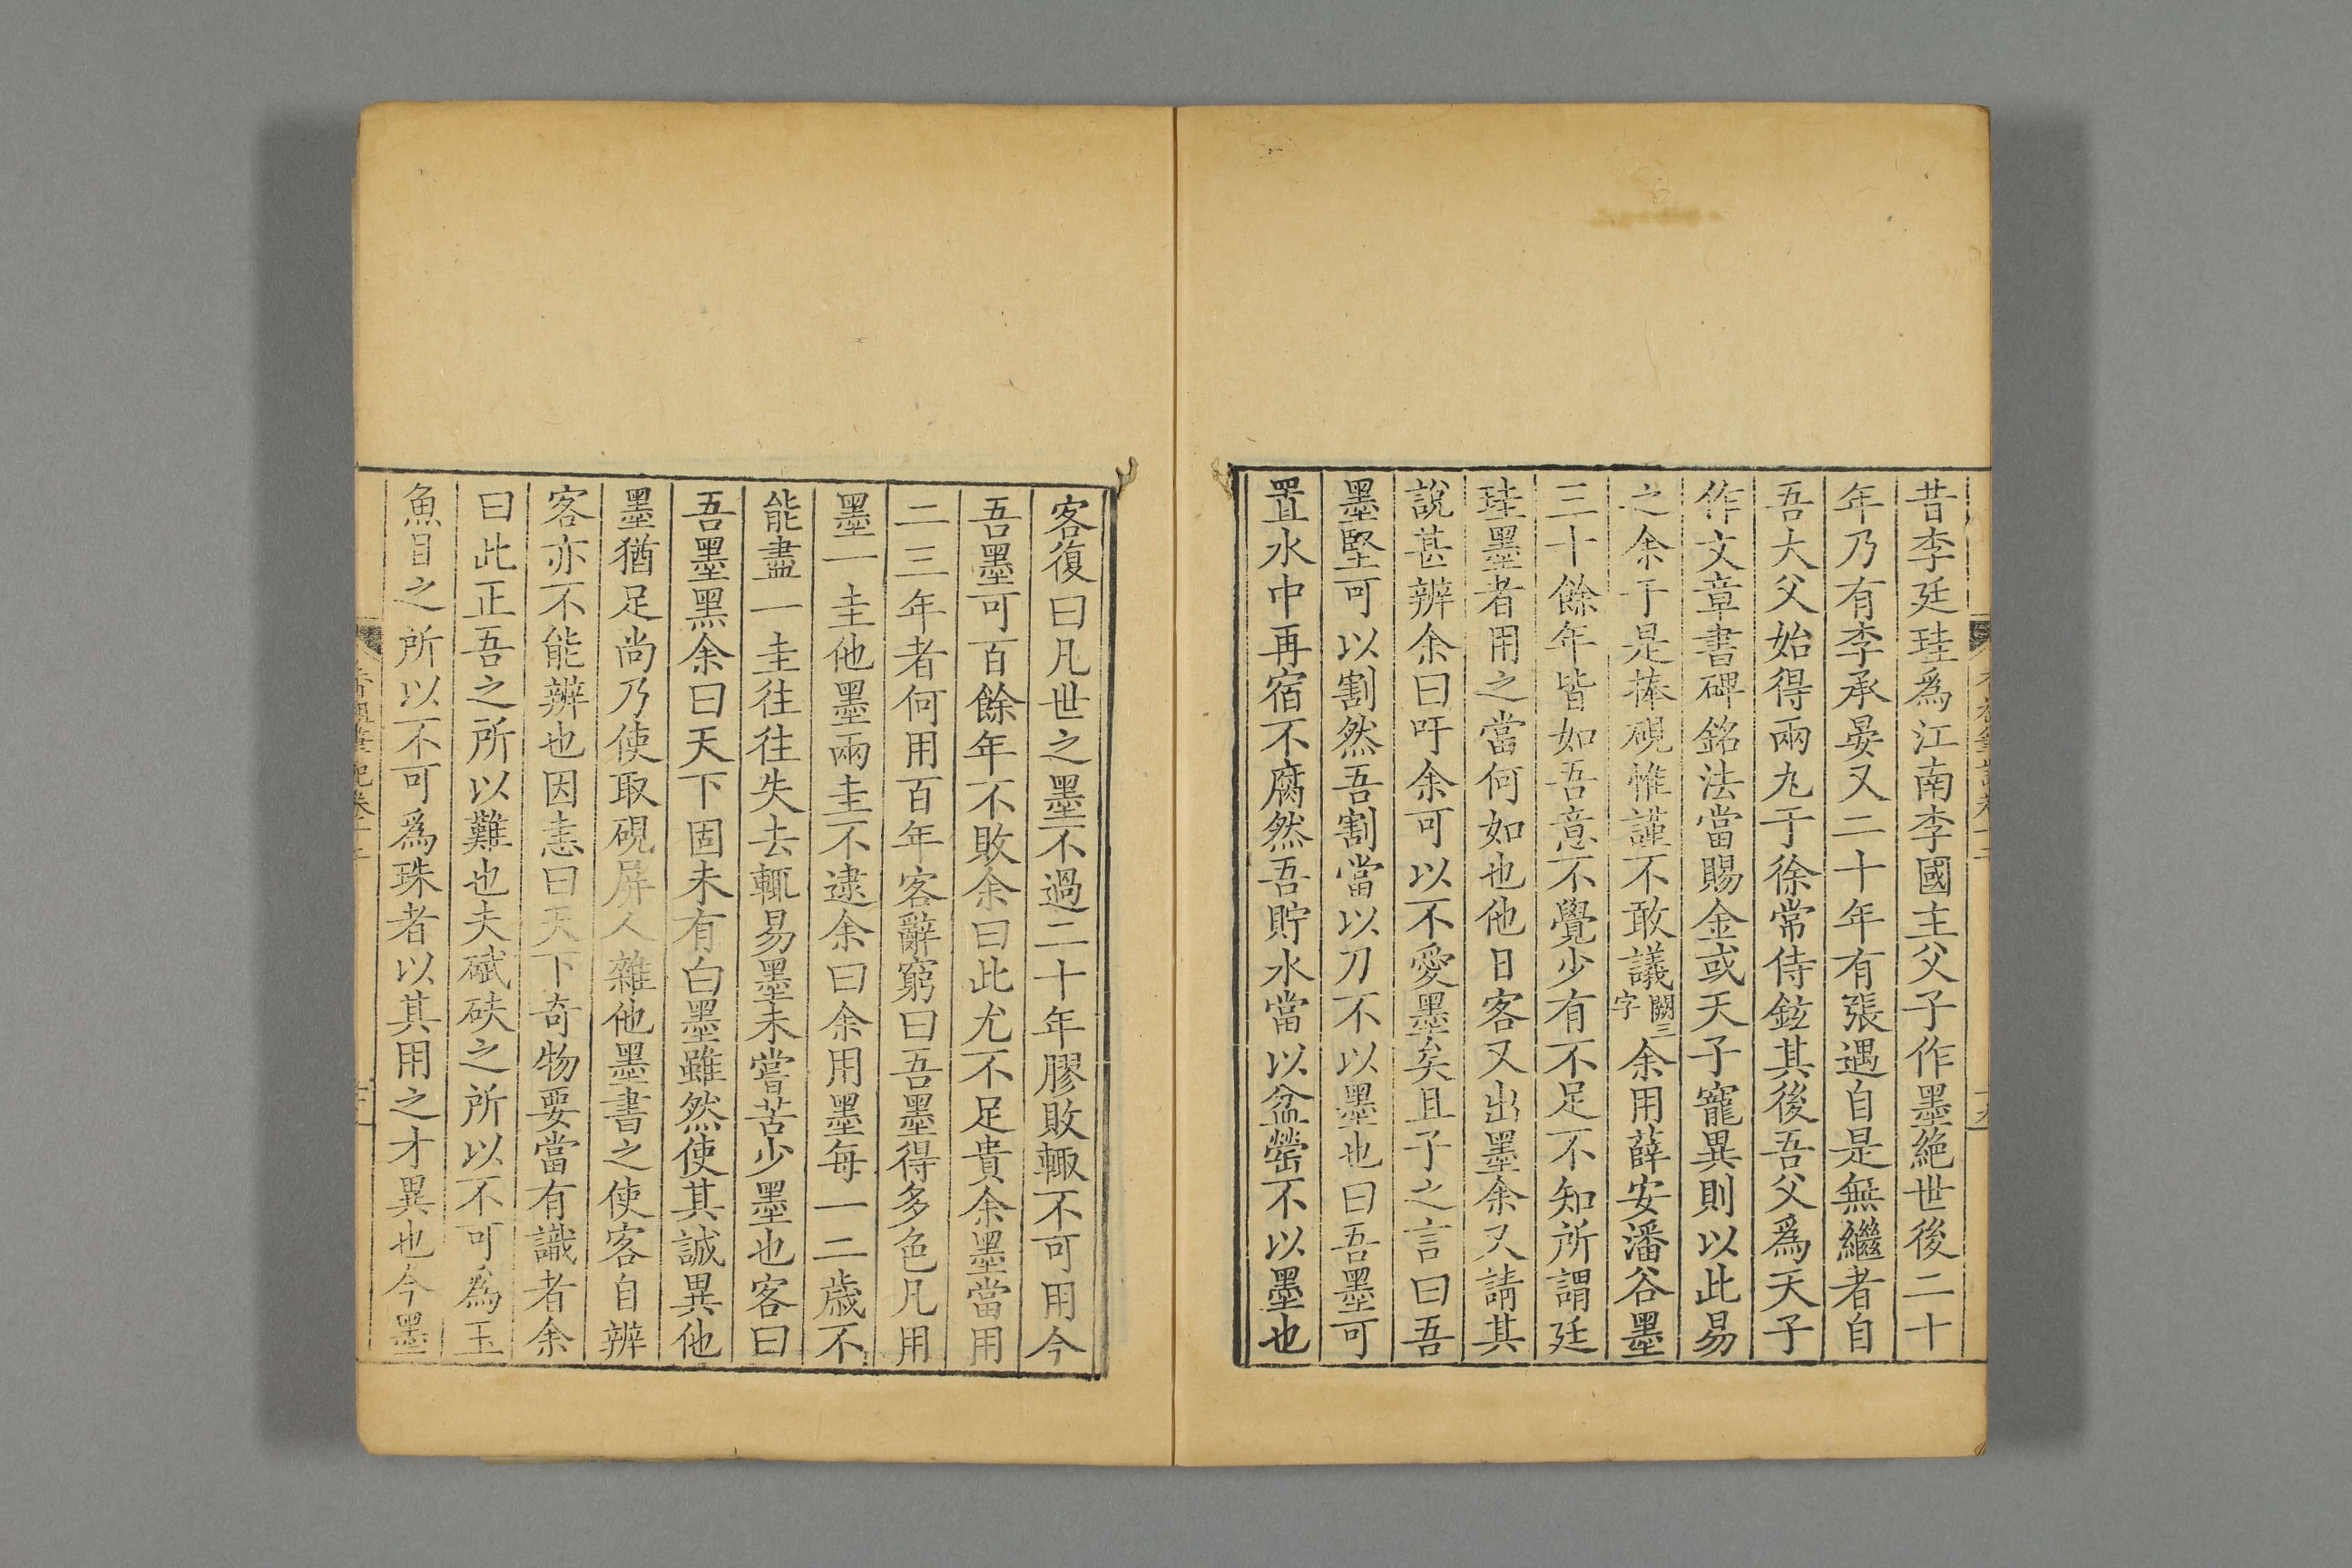 昔李廷珪爲江南李國主父子作墨絕世後二十
年乃有李承晏又二十年有張遇自是無繼者自
吾大父始得兩丸于徐常侍鉉其後吾父爲天子
作文章書碑銘法當賜金或天子寵異則以此易
之余于是捧硯惟謹不敢議闕三字余用薛安潘谷墨
三十餘年皆如吾意不覺少有不足不知所謂廷
珪墨者用之當何如也他日客又出墨余又請其
說甚辨余曰吁余可以不愛墨矣且子之言曰吾
墨堅可以割然吾割當以刀不以墨也曰吾墨可
置水中再宿不腐然吾貯水當以盆罃不以墨也
客復曰凡世之墨不過二十年膠敗輙不可用今
吾墨可百餘年不敗余曰此尤不足貴余墨當用
二三年者何用百年客辭窮曰吾墨得多色凡用
墨一圭他墨兩圭不逮余曰余用墨每一二歲不
能盡一圭往往失去輙易墨未嘗苦少墨也客曰
吾墨黑余曰天下固未有白墨雖然使其誠異他
墨猶足尚乃使取硯屏人雜他墨書之使客自辨
客亦不能辨也因恚曰天下奇物要當有識者余
曰此正吾之所以難也夫碔砆之所以不可為玉
魚目之所以不可爲珠者以其用之才異也今墨